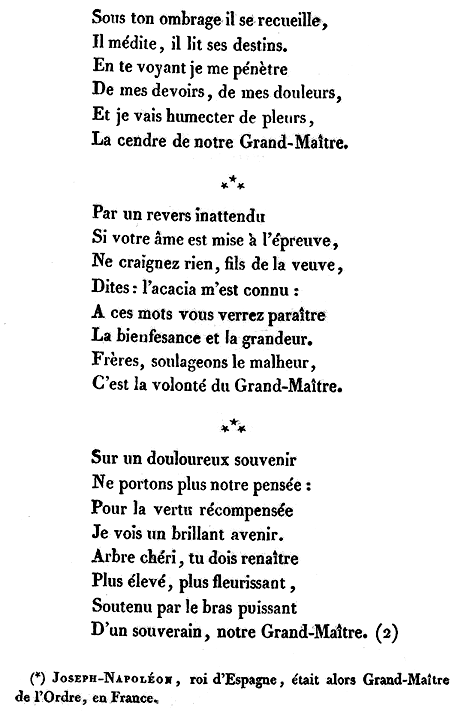 Sous ton ombrage il se recueille,
Il médite, il lit ses destins.
En te voyant je me pénètre
De mes devoirs, de mes douleurs,
Et je vais humecter de pleurs,
La cendre de notre Grand-Maître.
Par un revers inattendu
Si votre âme est mise à l'épreuve,
Ne craignez rien, fils de la veuve,
Dites : l'acacia m'est connu :
A ces mots vous verrez paraître
La bienfesance et la grandeur.
Frères, soulageons le malheur,
C'est la volonté du Grand-Maître.
Sur un douloureux souvenir
Ne portons plus notre pensée :
Pour la vertu récompensée
Je vois un brillant avenir.
Arbre chéri, tu dois renaître
Plus élevé, plus fleurissant,
Soutenu par le bras puissant
D'un souverain, notre Grand-Maître. (2)
(*) JOSEPH-NAPOLÉON, roi d'Espagne, était alors Grand-Maître
de l'Ordre, en France.